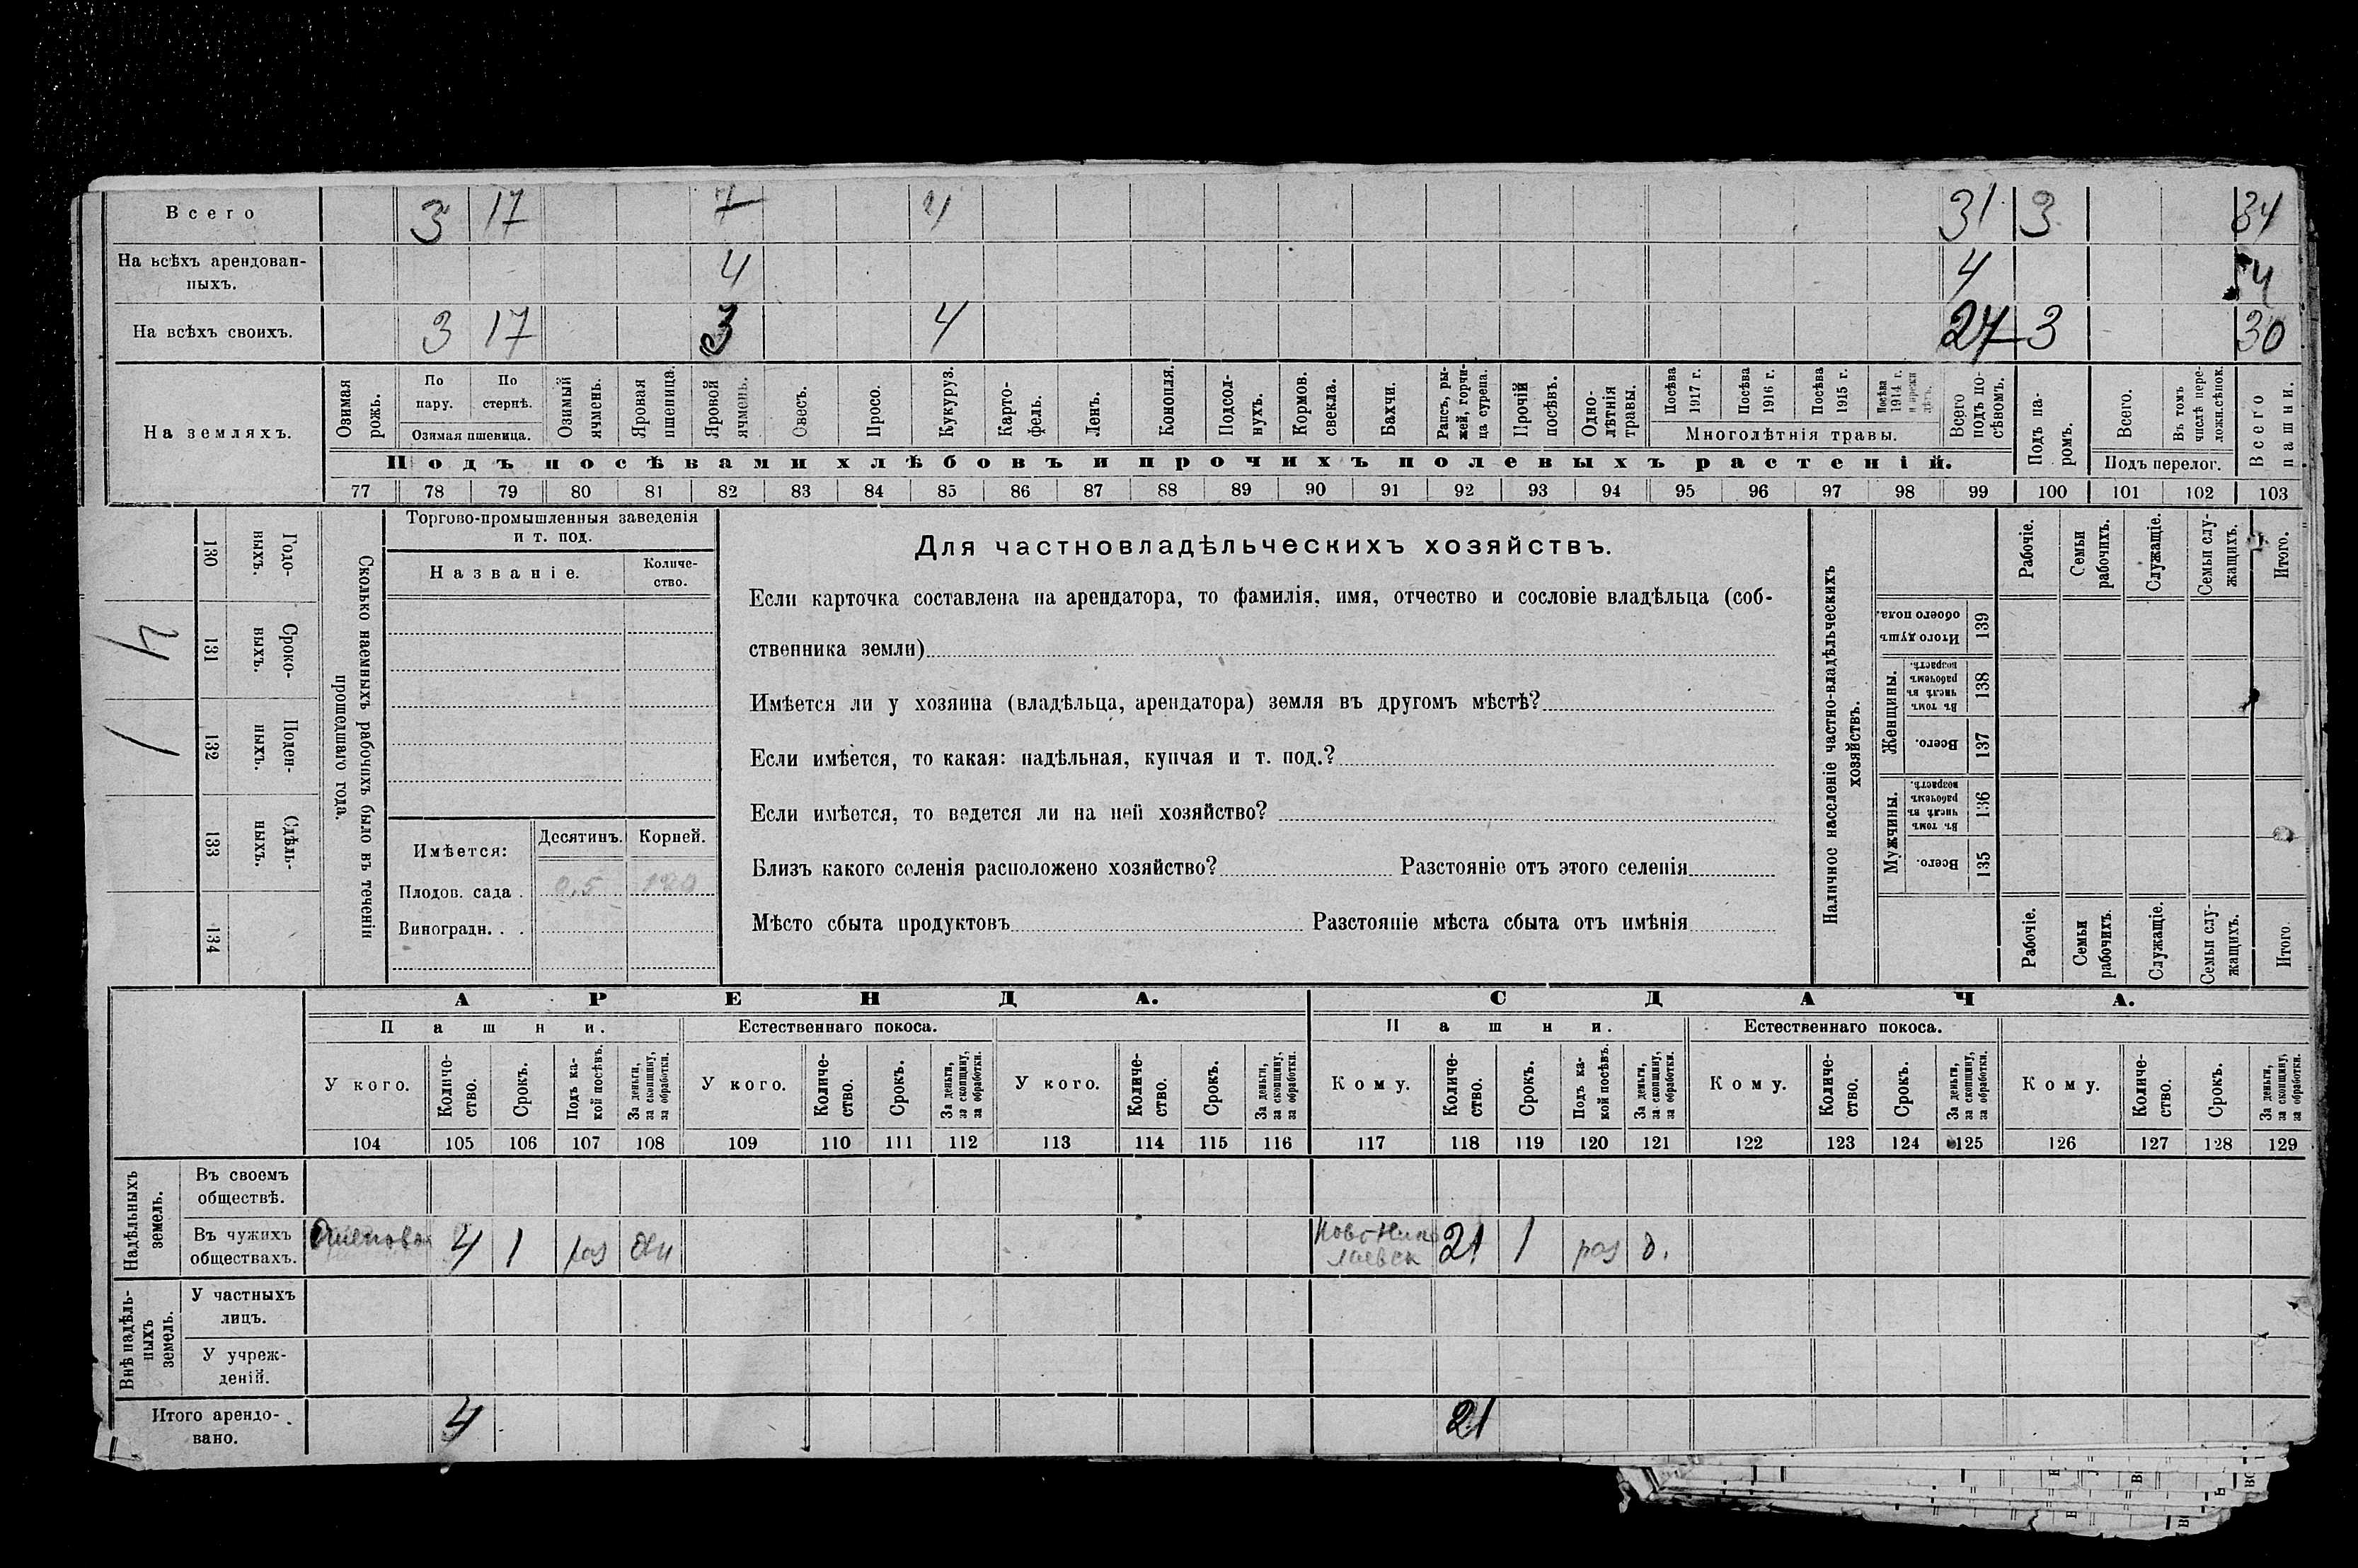 Всего 3 17 7 4 31 3 34
На всѣхъ арендован-
ныхъ. 4 4 4
На всѣхъ своихъ. 3 17 3 4 27 3 30
На земляхъ.
Озимая рожь.
По пару.
По стернѣ.
Озимая пшеница.
Озимый ячмень.
Яровая пшеница.
Яровой ячмень.
Овесъ.
Просо.
Кукуруз.
Карто-
фель.
Ленъ.
Конопля.
Подсол-
нухъ.
Кормов. свекла.
Бахчи.
Рапсъ, ры-
жей, горчи-
ца сурепа.
Прочій посѣвъ.
Одно-
лѣтнія травы.
Посѣва 1917 г.
Посѣва 1916 г.
Посѣва 1915 г.
Посѣва 1914 г.
Многолѣтнія травы.
Всего подъ по-
сѣвомъ.
Подъ па-
ромъ.
Всего.
Въ томъ числѣ пере-
ложн. сѣнок.
Подъ перелог.
Всего пашни.
Подъ посѣвами хлѣбовъ и прочихъ полевыхъ растеній.
77 78 79 80 81 82 83 84 85 86 87 88 89 90 91 92 93 94 95 96 97 98 99 100 101 102 103
Годо-
выхъ.
130
Сроко-
выхъ.
131
4
Поден-
ныхъ.
132
1
Сдѣль-
ныхъ.
133
134
Сколько наемныхъ рабочихъ было въ теченіи
прошедшаго года.
Торгово-промышленныя заведенія
и т. под.
Названіе.
Количе-
ство.
Имѣется:
Десятинъ.
Корней.
Плодов. сада . 0,5 120
Виноградн. . .
Для частновладѣльческихъ хозяйствъ.
Если карточка составлена на арендатора, то фамилія, имя, отчество и сословіе владѣльца (соб-
ственника земли)
Имѣется ли у хозяина (владѣльца, арендатора) земля въ другомъ мѣстѣ?
Если имѣется, то какая: надѣльная, купчая и т. под.?
Если имѣется, то ведется ли на ней хозяйство?
Близъ какого селенія расположено хозяйство? Разстояніе отъ этого селенія
Мѣсто сбыта продуктовъ Разстояніе мѣста сбыта отъ имѣнія
Наличное населеніе частно-владѣльческихъ
хозяйствъ.
Рабочіе.
Семьи рабочихъ.
Служащіе.
Семьи слу-
жащихъ.
Итого.
Итого душъ обоего пола.
139
Женщины.
Въ томъ числѣ въ рабочемъ возрастѣ.
138
Всего.
137
Мужчины.
Въ томъ числѣ въ рабочемъ возрастѣ.
136
Всего.
135
Рабочіе.
Семьи рабочихъ.
Служащіе.
Семьи слу-
жащихъ.
Итого.
АРЕНДА. СДАЧА.
Пашни. Естественнаго покоса. Пашни. Естественнаго покоса.
У кого.
Количе-
ство.
Срокъ.
Подъ ка-
кой посѣвъ.
За деньги,
за скопщину,
за обработки.
У кого.
Количе-
ство.
Срокъ.
За деньги,
за скопщину,
за обработки.
У кого.
Количе-
ство.
Срокъ.
За деньги,
за скопщину,
за обработки.
Кому.
Количе-
ство.
Срокъ.
Подъ ка-
кой посѣвъ.
За деньги,
за скопщину,
за обработки.
Кому.
Количе-
ство.
Срокъ.
За деньги,
за скопщину,
за обработки.
Кому.
Количе-
ство.
Срокъ.
За деньги,
за скопщину,
за обработки.
104 105 106 107 108 109 110 111 112 113 114 115 116 117 118 119 120 121 122 123 124 125 126 127 128 129
Надѣльныхъ
земель.
Въ своемъ
обществѣ.
Въ чужихъ
обществахъ.
4 1 раз
Ново-Нико
лаевск 21 1 раз д.
Внѣ надѣль-
ныхъ
земель.
У частныхъ
лицъ.
У учреж-
деній.
Итого арендо-
вано. 4 21